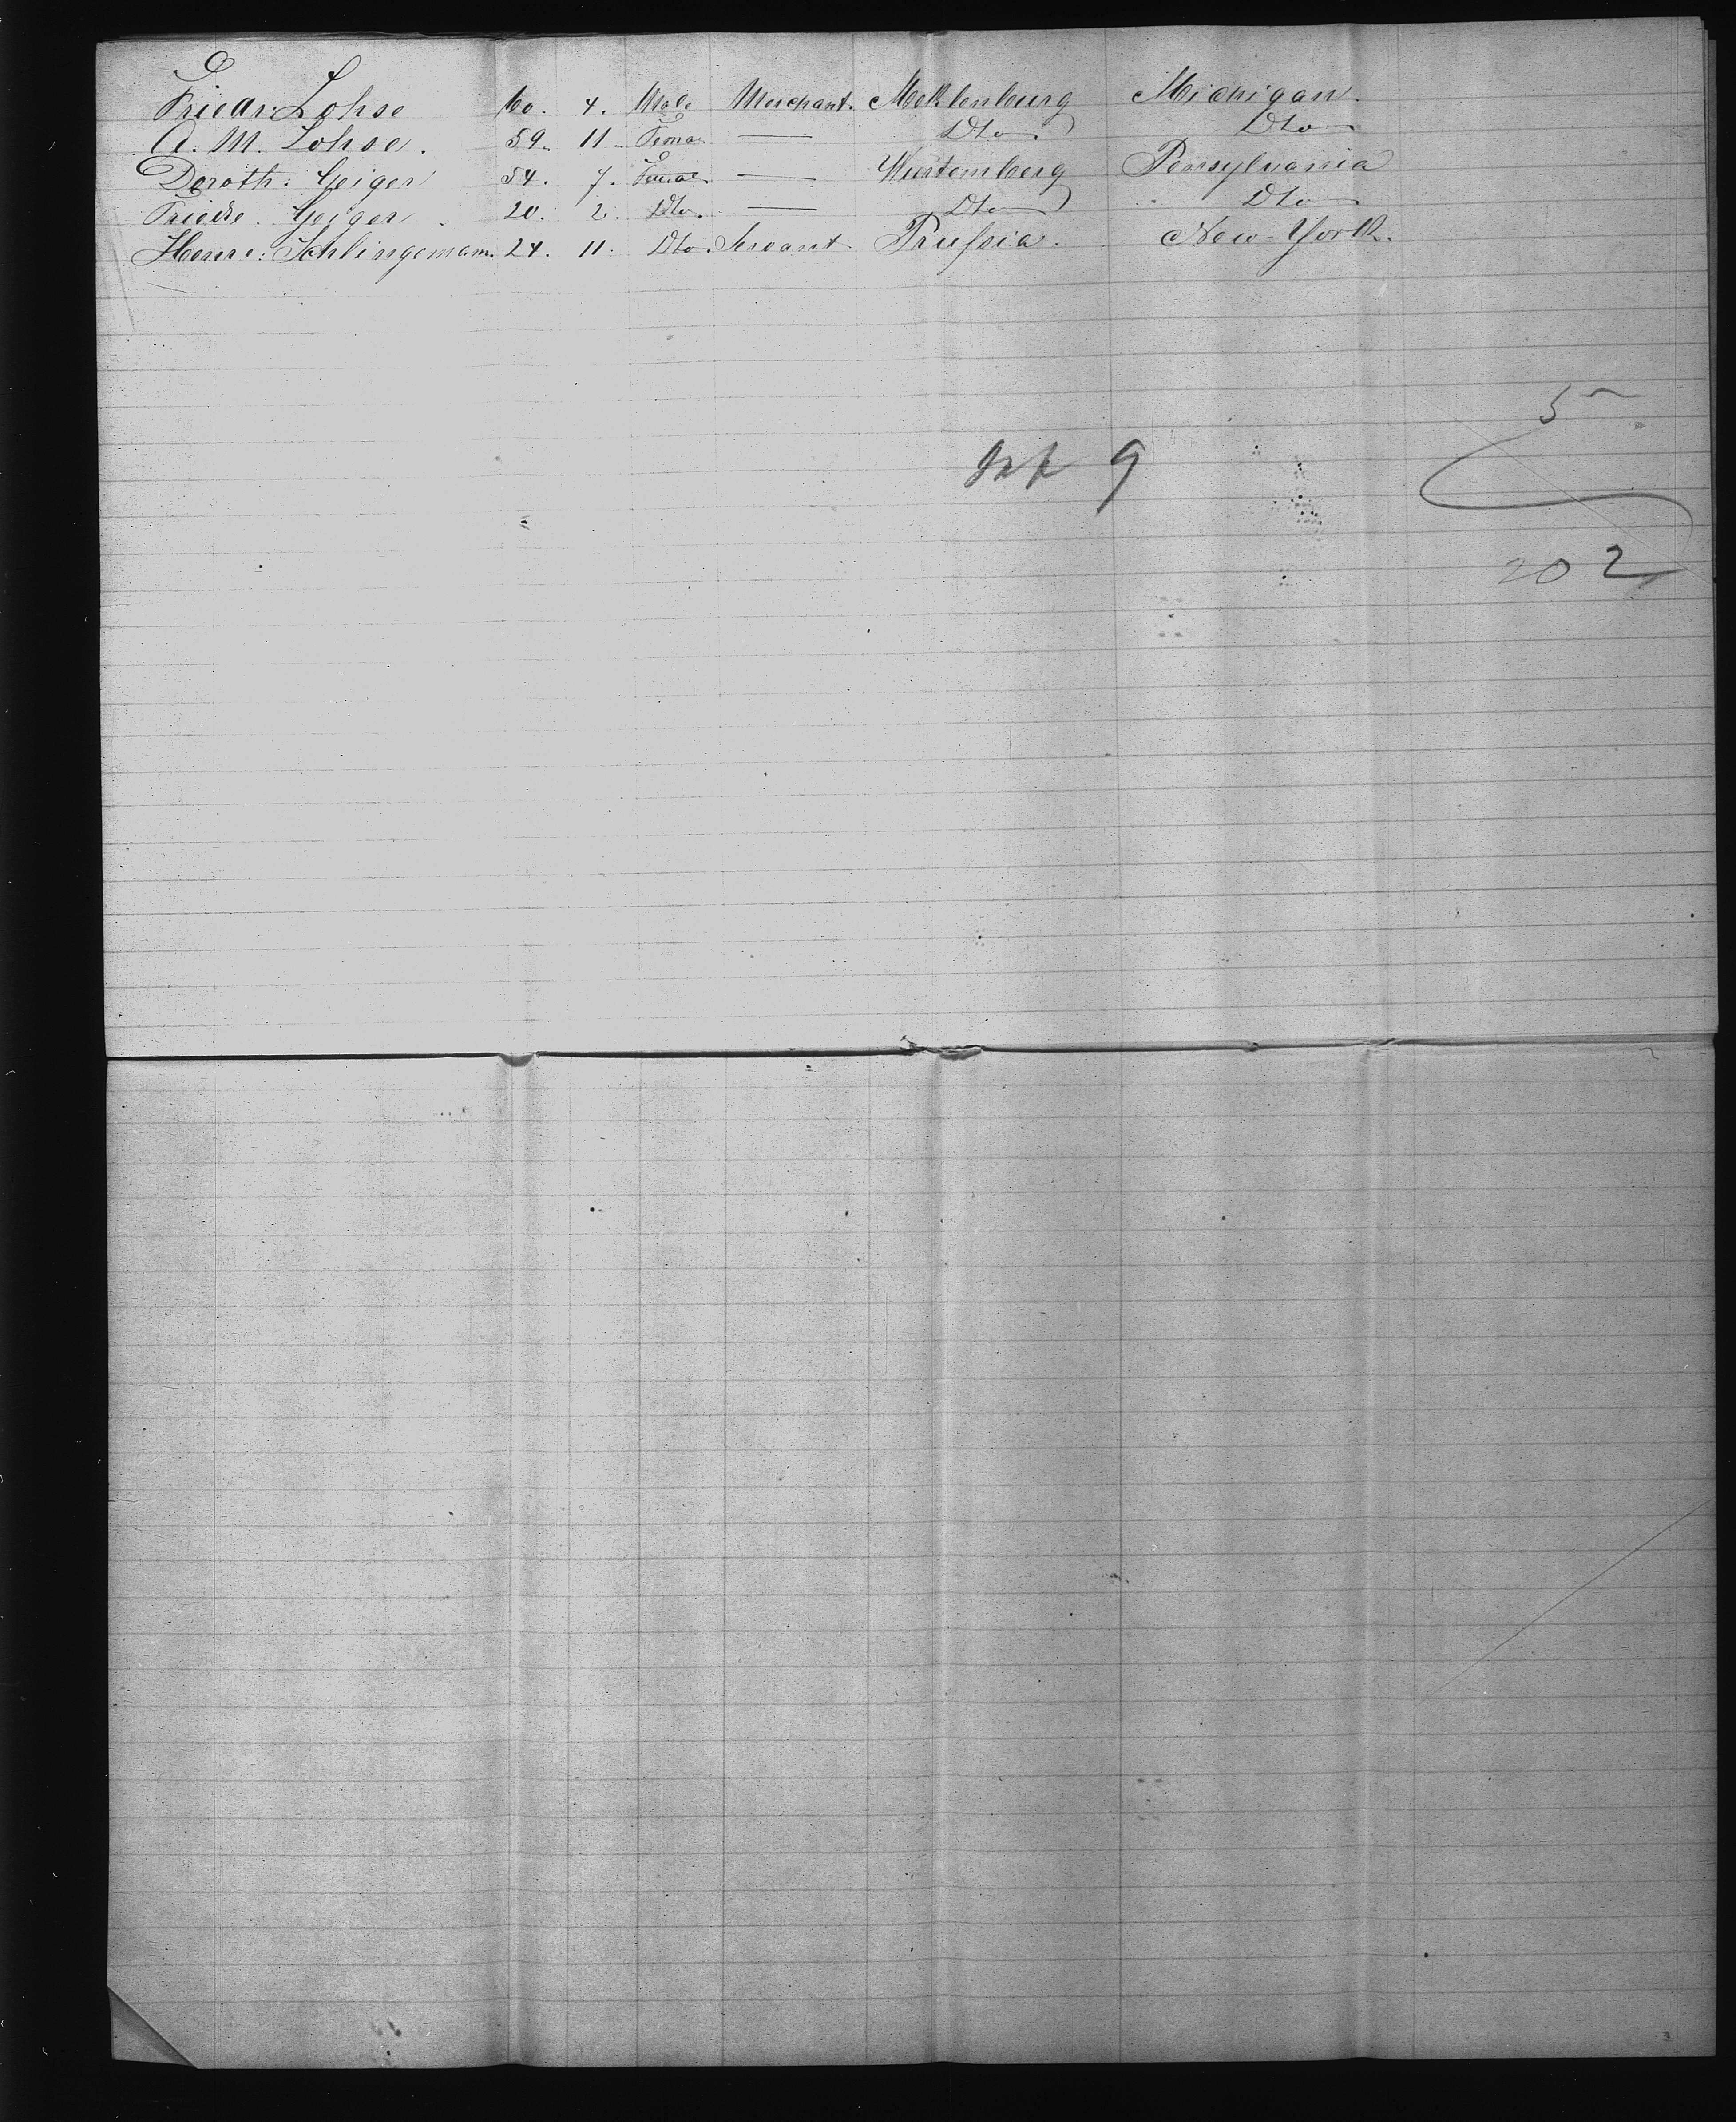 Friedr: Lohse 60. 4. Male Merchant. Meklenburg Michigan.
A. M. Lohse. 59. 11 Femal — Dto Dto
Doroth: Geiger 54. 7. Female — Würtemberg Pensylvania
Friedre. Geiger. 20. 2. Dto. — Dto Dto
Henre: Schlingemann. 24. 11. Dto. Servant Prussia. New-York.
5
9
202